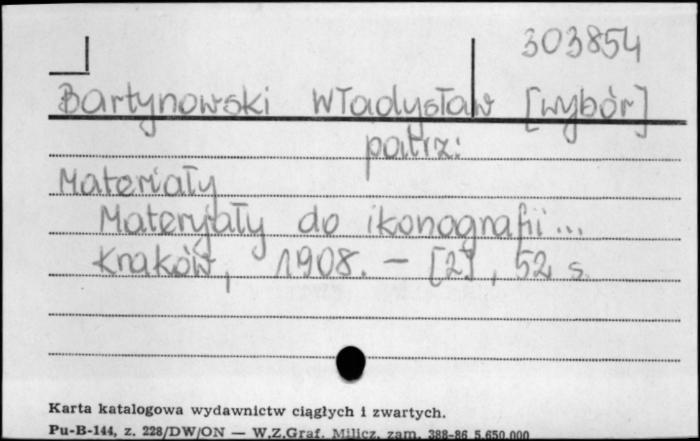 303854
Bartynowski Władysław [wybór]
patrz:
Materiały
Materyały do ikonografii...
Kraków, 1908. – [2], 52 s.
Karta katalogowa wydawnictw ciągłych i zwartych.
Pu-B-144, z. 228/DW/ON — W.Z.Graf. Milicz, zam. 388-86 5.650.000